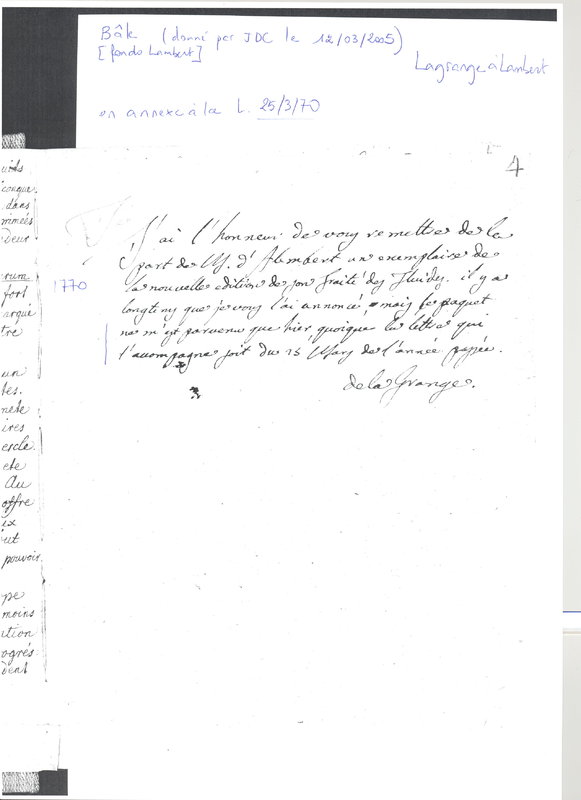 Bâle (donné par JDC le 12/03/2005)
[fonds Lambert]
Lagrange à Lambert
en annexe à la L. 25/3/70
4
1770
J'ai l'honneur de vous remettre de la
part de M. d'Alembert un exemplaire de
la nouvelle edition de son Traité des Fluides. il y a
longtems que je vous l'ai annoncé, mais le paquet
ne m'est parvenu que hier, quoique la lettre qui
l'accompagne soit du 15 Mars de l'année passée.
de la Grange.
uids
conque
dans
rimées
Deux
rum
fort
arque
tre
un
tes.
nete
ires
escle.
ete
Au
offre
ix
uit
pouvoir
pe
moins
ition
ogrés
dent